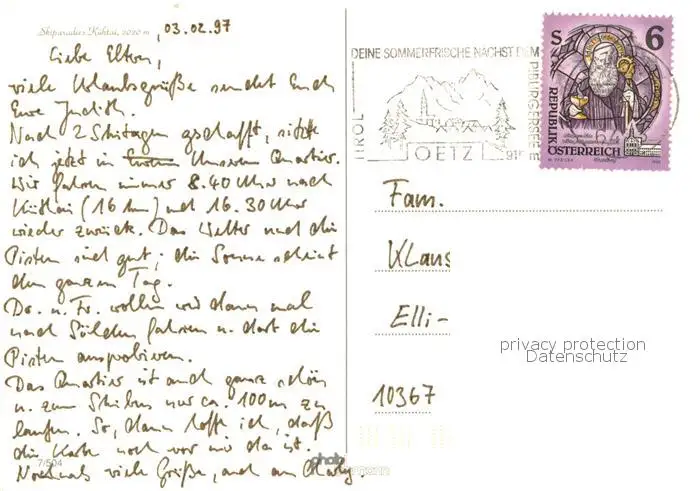 Skiparadies Kühtai, 2020 m, 03.02.97
Liebe Eltern,
viele Urlaubsgrüße sendet Euch
Eure Judith.
Nach 2 Skitagen geschafft, sitze
ich jetzt in Unserem Quartier.
Wir fahren immer 8.40 Uhr nach
Kühtai (16 km) und 16.30 Uhr
wieder zurück. Das Wetter und die
Pisten sind gut; die Sonne scheint
den ganzen Tag.
Do. u. Fr. wollen wir dann mal
nach Sölden fahren u. dort die
Pisten ausprobieren.
Das Quartier ist auch ganz schön
u. zum Skibus nur ca. 100m zu
laufen. So, dann hoffe ich, daß
die Karte noch vor mir da ist.
Nochmals viele Grüße, auch an
7/504
DEINE SOMMERFRISCHE NÄCHST DEM
PIBURGERSEE
TIROL
OETZ
S 6
REPUBLIK
ÖSTERREICH
Fam.
Klaus
Elli-
10367
privacy protection
Datenschutz